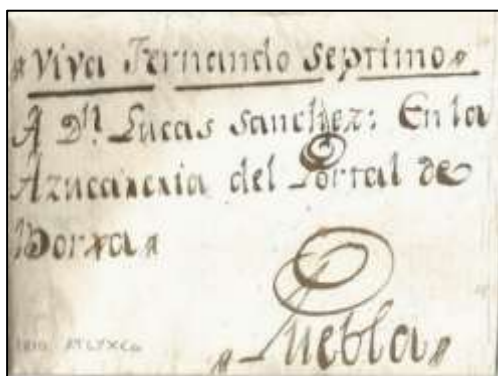 Viva Fernando Septimo
A Dn. Lucas Sanchez: En la
Azucareria del Portal de
Borxa
Puebla
1810 ATLYXCO